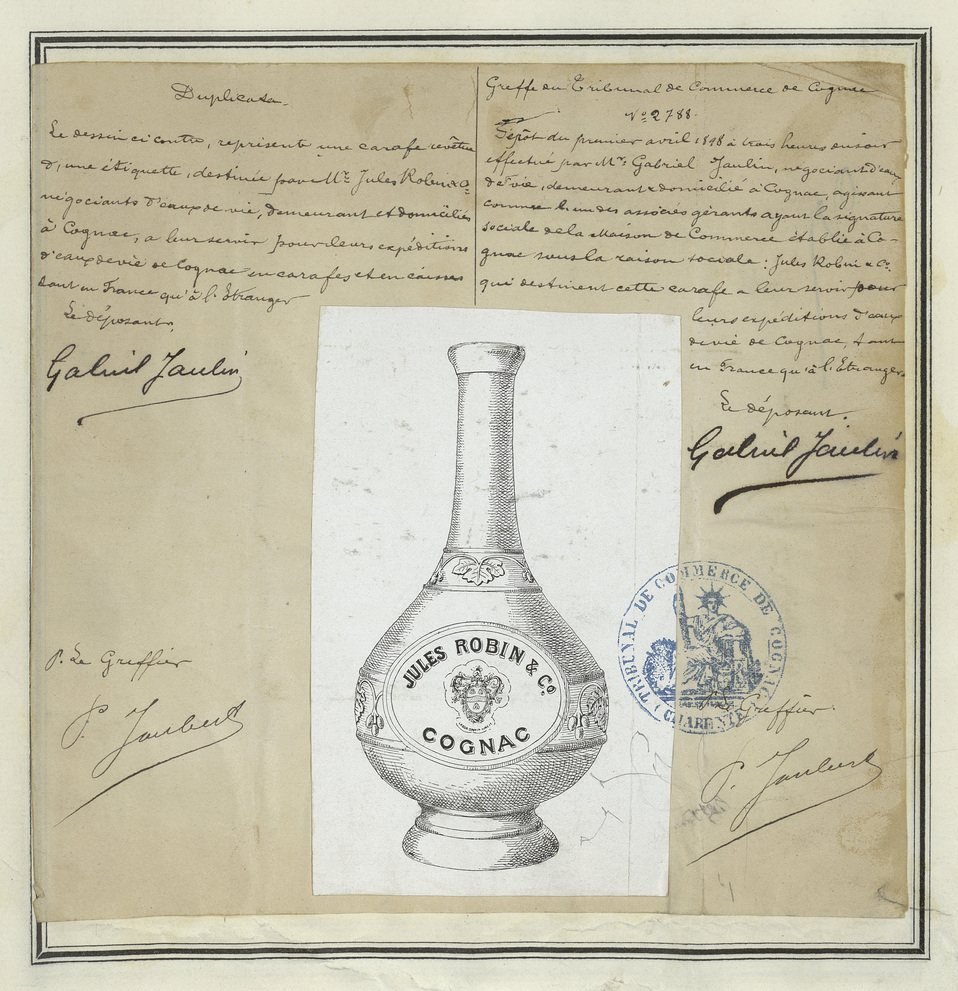 Duplicata.
Le dessin ci contre, représente une carafe revêtue
d'une étiquette, destinée par Mrs Jules Robin & Co
négociants d'eaux de vie, demeurant et domiciliés
à Cognac, a leur servir pour leurs expéditions
d'eaux de vie de Cognac en carafes et en caisses
tant en France qu'à l'Etranger
Le déposant.
Gabriel Jaulin
P. Le Greffier
P. Joubert
Greffe du Tribunal de Commerce de Cognac
No 2788.
Dépôt du premier avril 1898 à trois heures du soir
effectué par Mr Gabriel Jaulin, négociant d'eaux
de vie, demeurant & domicilié à Cognac, agissant
comme l'un des associés gérants ayant la signature
sociale de la Maison de Commerce établie à Co-
gnac sous la raison sociale: Jules Robin & Co.
qui destinent cette carafe a leur servir pour
leurs expéditions d'eaux
de vie de Cognac, tant
en France qu'à l'Etranger.
Le déposant.
Gabriel Jaulin
TRIBUNAL DE COMMERCE DE COGNAC
(CHARENTE)
Greffier.
P. Joubert
JULES ROBIN & Co.
COGNAC